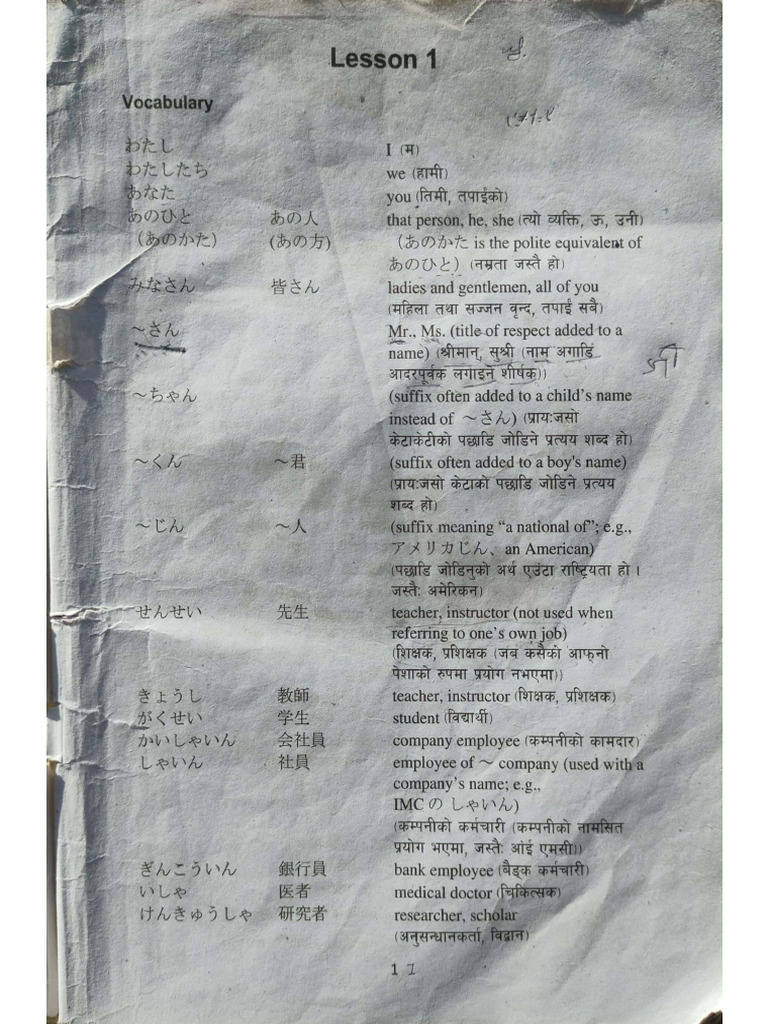 Lesson 1
Vocabulary
わたし I (म)
わたしたち we (हामी)
あなた you (तिमी, तपाईंको)
あのひと あの人 that person, he, she (त्यो व्यक्ति, ऊ, उनी)
（あのかた） (あの方) （あのかた is the polite equivalent of
あのひと） (नम्रता जस्तै हो)
みなさん 皆さん ladies and gentlemen, all of you
(महिला तथा सज्जन वृन्द, तपाईं सबै)
～さん Mr., Ms. (title of respect added to a
name) (श्रीमान्, सुश्री (नाम अगाडि
आदरपूर्वक लगाइने शीर्षक))
～ちゃん (suffix often added to a child's name
instead of ～さん) (प्रायःजसो
केटाकेटीको पछाडि जोडिने प्रत्यय शब्द हो)
～くん ～君 (suffix often added to a boy's name)
(प्रायःजसो केटाको पछाडि जोडिने प्रत्यय
शब्द हो)
～じん ～人 (suffix meaning "a national of"; e.g.,
アメリカじん、an American)
(पछाडि जोडिनुको अर्थ एउटा राष्ट्रियता हो ।
जस्तैः अमेरिकन)
せんせい 先生 teacher, instructor (not used when
referring to one's own job)
(शिक्षक, प्रशिक्षक (जब कसैको आफ्नो
पेशाको रुपमा प्रयोग नभएमा))
きょうし 教師 teacher, instructor (शिक्षक, प्रशिक्षक)
がくせい 学生 student (विद्यार्थी)
かいしゃいん 会社員 company employee (कम्पनीको कामदार)
しゃいん 社員 employee of ～ company (used with a
company's name; e.g.,
IMCの しゃいん)
(कम्पनीको कर्मचारी (कम्पनीको नामसित
प्रयोग भएमा, जस्तैः आंई एमसी))
ぎんこういん 銀行員 bank employee (बैङ्क कर्मचारी)
いしゃ 医者 medical doctor (चिकित्सक)
けんきゅうしゃ 研究者 researcher, scholar
(अनुसन्धानकर्ता, विद्वान)
1 1